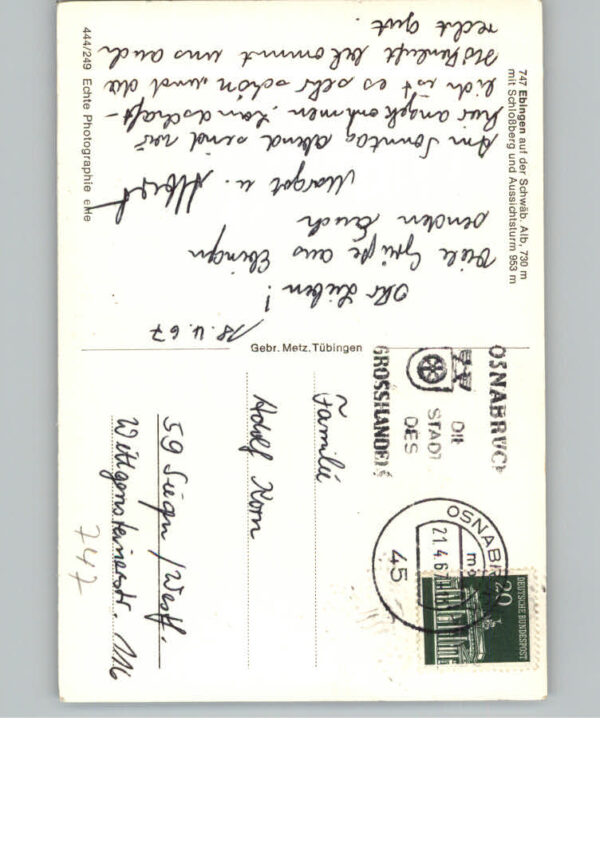 747 Ebingen auf der Schwäb. Alb, 730 m
mit Schloßberg und Aussichtsturm 953 m
18.4.67
Ihr Lieben!
Viele Grüße aus Ebingen
senden Euch
Margot u. Albert
Am Sonntag abend sind wir
hier angekommen. Landschaft-
lich ist es sehr schön und die
Höhenluft bekommt uns auch
recht gut.
444/249 Echte Photographie
Gebr. Metz, Tübingen
OSNABRÜCK
DIE
STADT
DES
GROSSHANDELS
OSNABR
21.4.67
45
20
DEUTSCHE BUNDESPOST
Familie
Adolf Korn
59 Siegen/Westf.
Wittgensteinerstr. 116
747